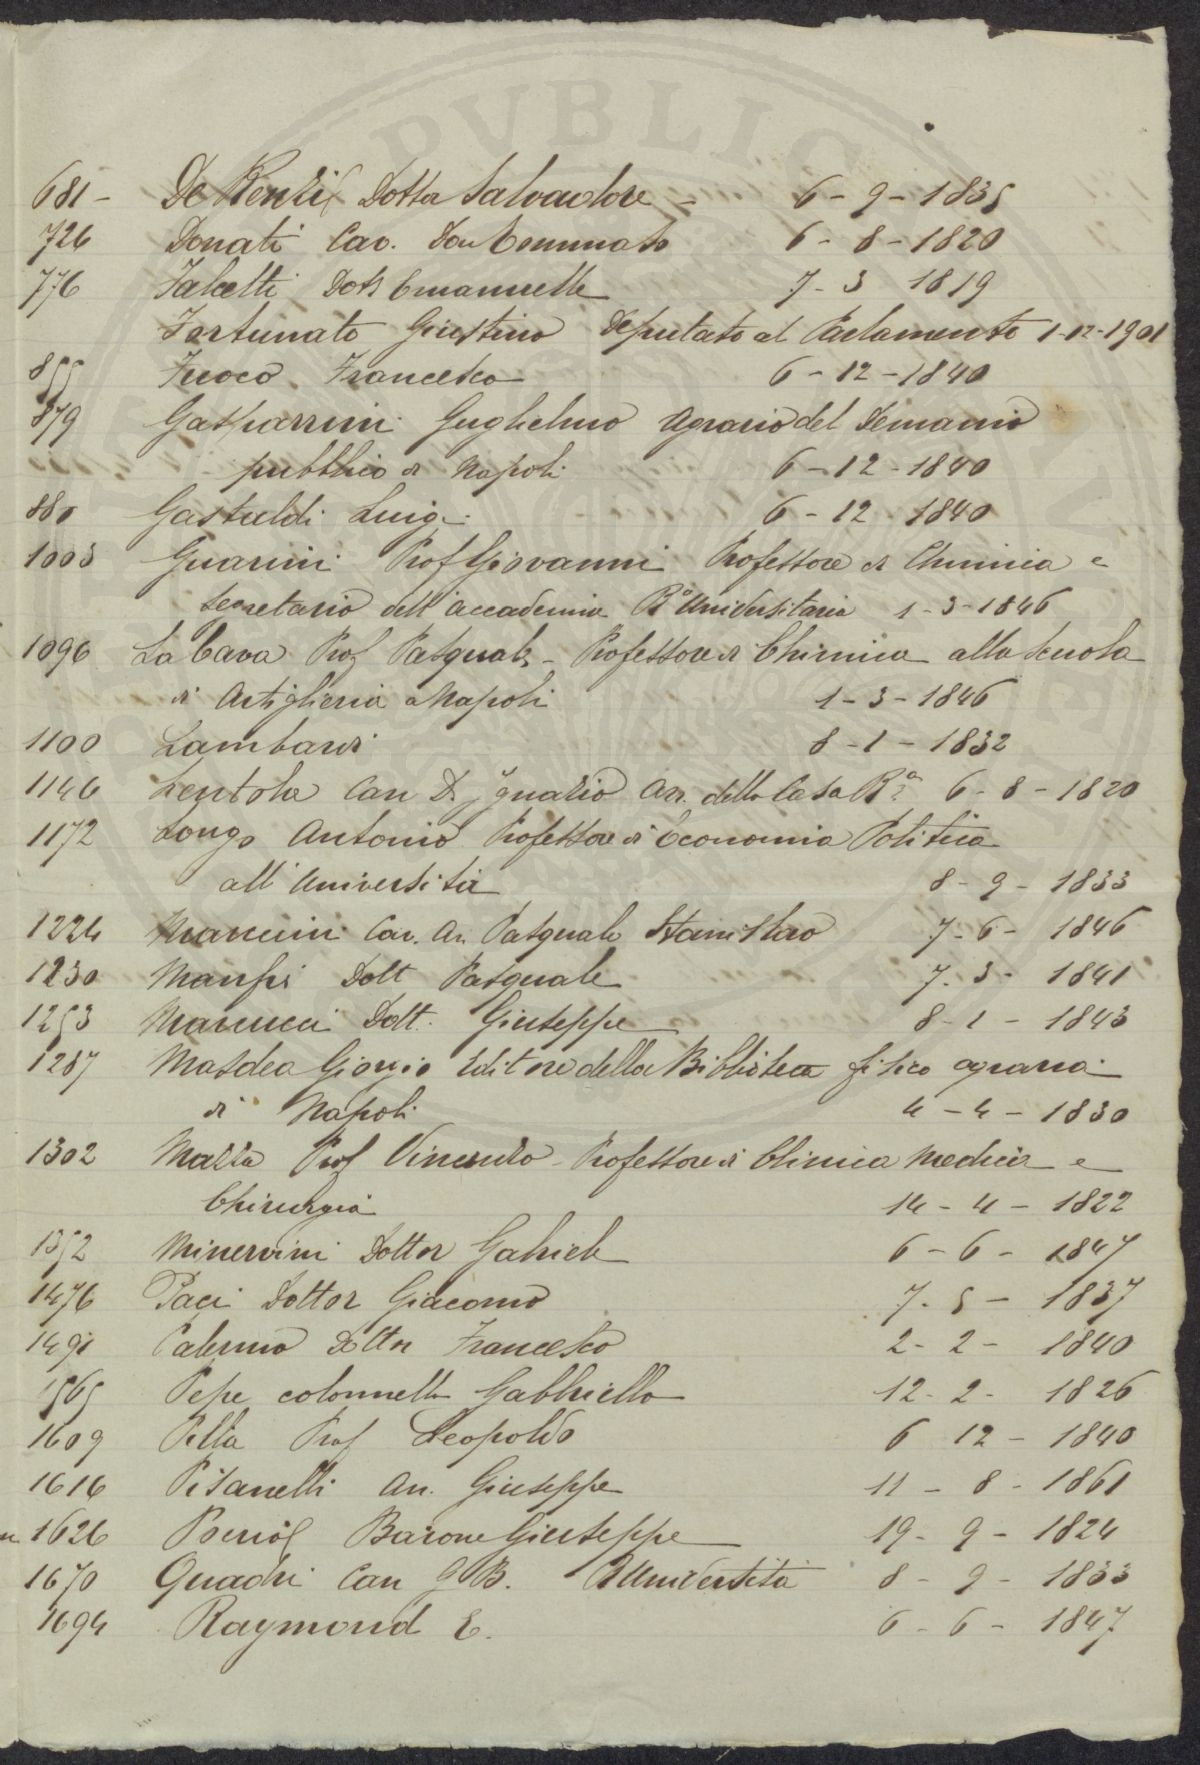 PUBLIC
681 - De Renzis Dottor Salvadore - 6 - 9 - 1835
726 Donati Cav. 6 - 8 - 1820
776 Falcetti Dott Emanuelle 7 - 3 1819
Fortunato Giustino Deputato al Parlamento 1-12-1901
855 Fuoco Francesco 6 - 12 - 1840
879 Gasparrini Guglielmo Agrario del Demanio
pubblico di Napoli 6 - 12 - 1840
880 Gastaldi Luigi 6 - 12 - 1840
1003 Guarini Prof Giovanni Professore di Chimica e
Segretario dell'accademia Ra Universitaria 1 - 3 - 1846
1096 La Cava Prof Pasquale - Professore di Chimica alla Scuola
di Artiglieria a Napoli 1 - 3 - 1846
1100 Lambardi 8 - 1 - 1832
1146 Can D. Ignazio della Casa Ra 6 - 8 - 1820
1172 Longo Antonio Professore di Economia Politica
all'Università 8 - 9 - 1833
1224 Mancini Cav. Av. Pasquale Stanislao 7 - 6 - 1846
1230 Manfri Dott Pasquale 7 - 3 - 1841
1253 Marcucci Dott. Giuseppe 8 - 1 - 1843
1287 Masdea Giorgio Editore della Biblioteca fisico agraria
di Napoli 4 - 4 - 1830
1302 Mazza Prof Vincenzo - Professore di Clinica Medica e
Chirurgia 14 - 4 - 1822
1352 Minervini Dottor Gabriele 6 - 6 - 1847
1476 Paci Dottor Giacomo 7 - 5 - 1837
1490 Palermo Dottor Francesco 2 - 2 - 1840
1565 Pepe colonnello Gabbriello 12 - 2 - 1826
1609 Pilla Prof Leopoldo 6 12 - 1840
1616 Pisanelli Av. Giuseppe 11 - 8 - 1861
1626 Poerio Barone Giuseppe 19 - 9 - 1824
1670 Quadri Can G B. Università 8 - 9 - 1833
1694 Raymond E. 6 - 6 - 1847